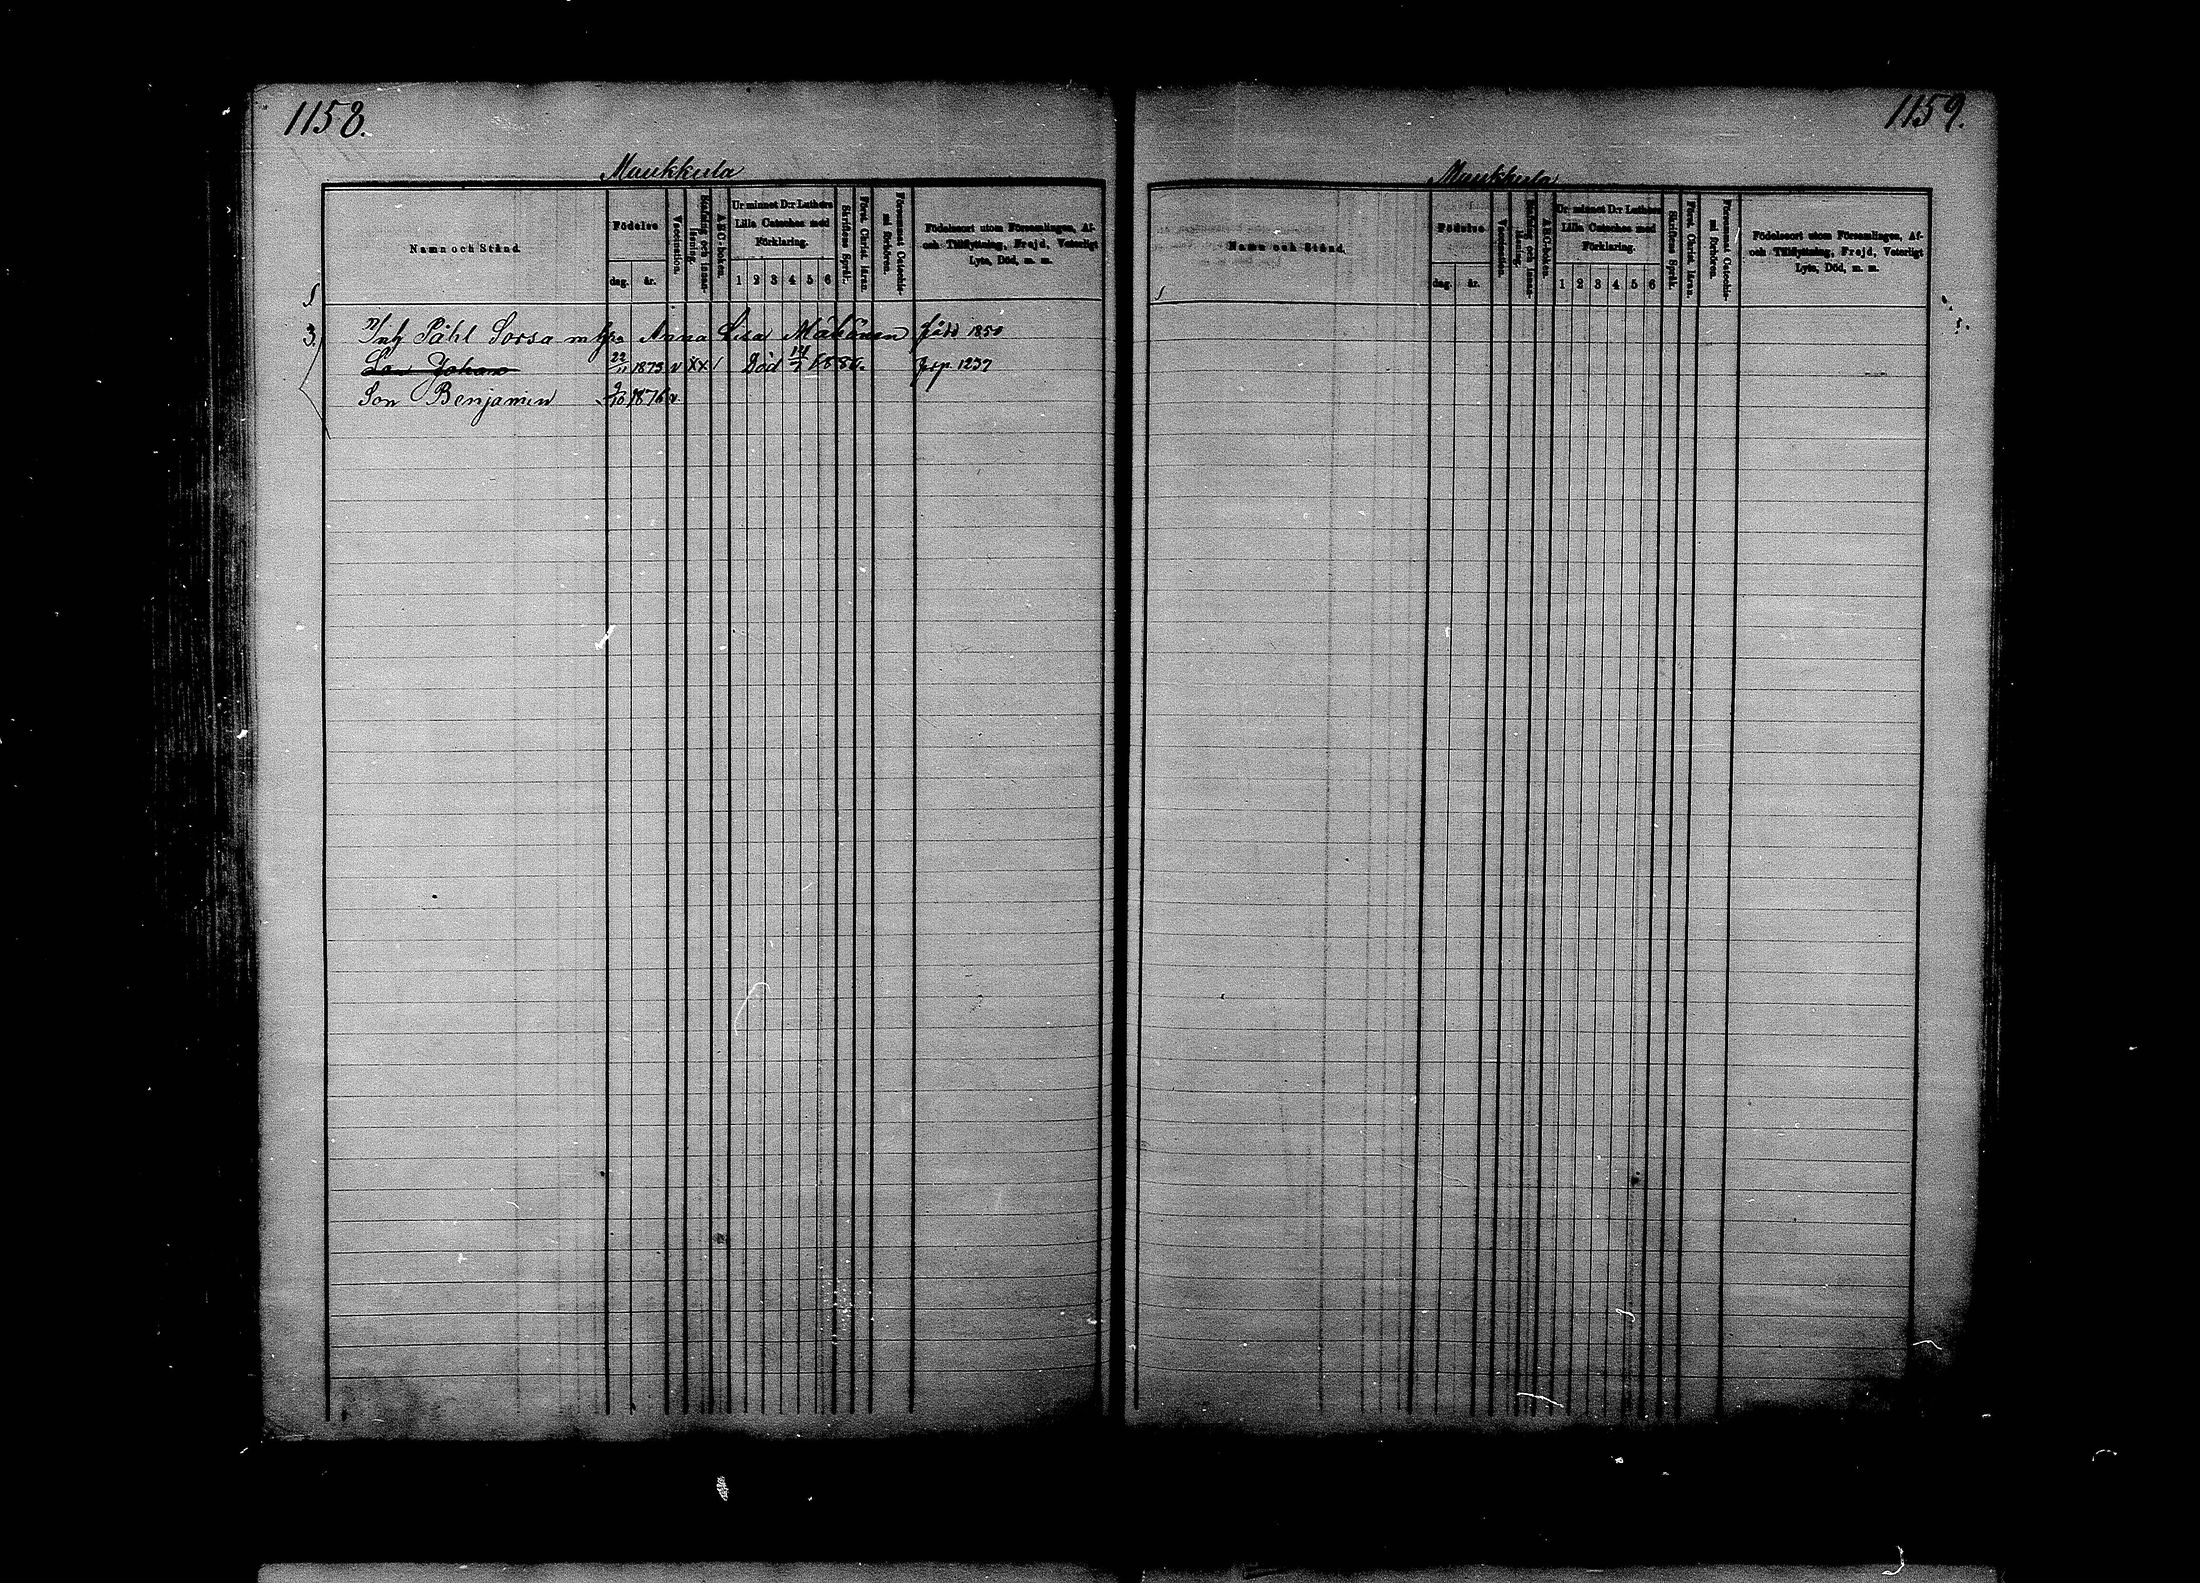 1158.
Maukkula
Namn och Stånd.
Födelse
dag. år.
Vaccination.
Stafning och innan-läsning.
ABC-boken.
Ur minnet D:r Luthers Lilla Cateches med Förklaring.
1 2 3 4 5 6
Skriftens Språk.
Först. Christ. läran.
Försummat Catechis-mi förhören.
Födelseort utom Församlingen, Af-
och Tillflyttning, Frejd, Veterligt
Lyte, Död, m. m.
3. Påhl Sorsa Anna Lisa Mähönen född 1850
Son Johan 22/11 1873 v xx / Död 1880. 1237
Son Benjamin 9/10 1876 v
1159.
Maukkula
Namn och Stånd.
Födelse
dag. år.
Vaccination.
Stafning och innan-läsning.
ABC-boken.
Ur minnet D:r Luthers Lilla Cateches med Förklaring.
1 2 3 4 5 6
Skriftens Språk.
Först. Christ. läran.
Försummat Catechis-mi förhören.
Födelseort utom Församlingen, Af-
och Tillflyttning, Frejd, Veterligt
Lyte, Död, m. m.